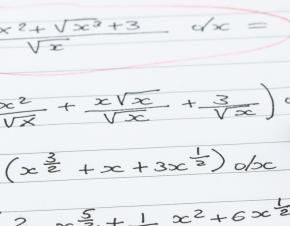 x² + √x³ + 3 / √x dx =
x²/√x + x√x/√x + 3/√x )
(x^3/2 + x + 3x^1/2) dx
2 x^5/2 + 1 x² + 6x^1/2